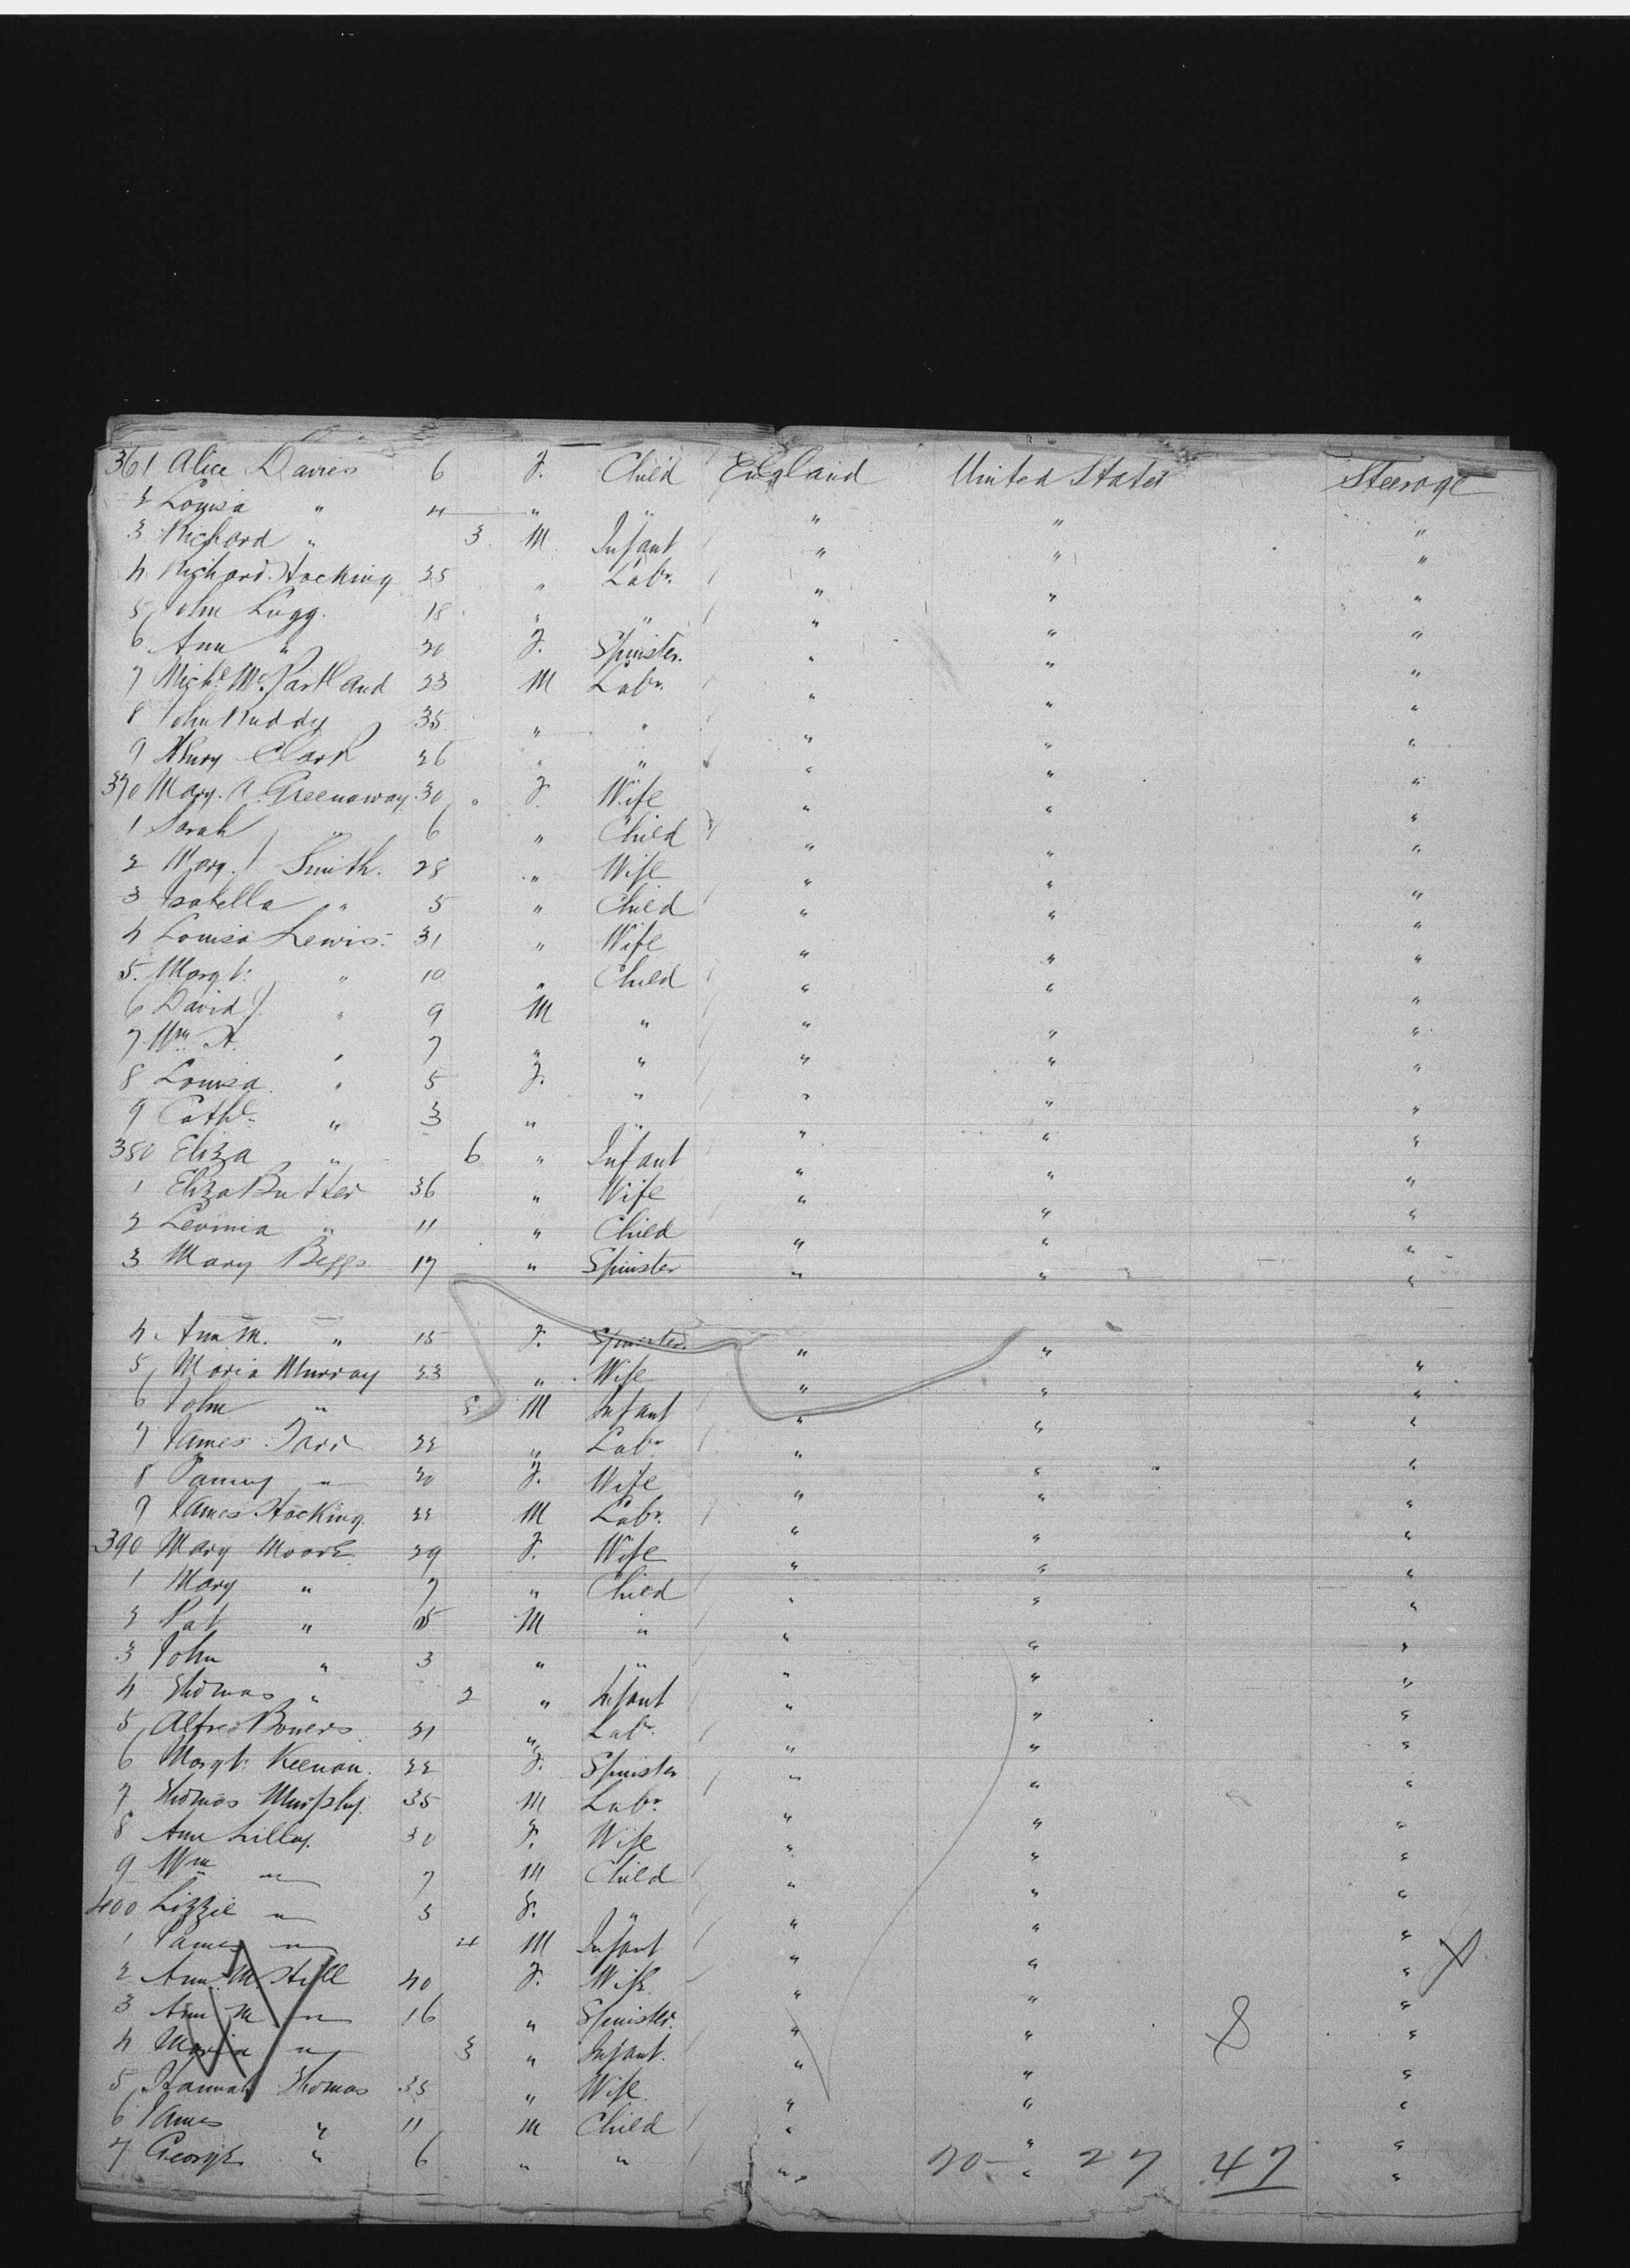 361 Alice Davies 6 F. Child England United States Steerage
2 Louisa " 4 " " " " "
3 Richard " 3 M Infant " " "
4 Richard Hocking 25 " Labr. " " "
5 John Lugg. 18 " " " " "
6 Ann " 20 F. Spinster. " " "
7 Michl. McPartland 23 M Labr. " " "
8 John Ruddy 35 " " " " "
9 Henry Clark 26 " " " " "
370 Mary. A. Greenaway 30 F. Wife " " "
1 Sarah " 6 " Child " " "
2 Marg. J. Smith. 28 " Wife " " "
3 Isabella " 5 " Child " " "
4 Louisa Lewis. 31 " Wife " " "
5. Margt. " 10 " Child " " "
6 David J. " 9 M " " " "
7 Wm. A. " 7 " " " " "
8 Louisa " 5 F. " " " "
9 Cathe. " 3 " " " " "
380 Eliza " 6 " Infant " " "
1 Eliza Butter 36 " Wife " " "
2 Levinia " 11 " Child " " "
3 Mary Beggs 17 " Spinster " " "
4. Ann M. " 15 F. Spinster " " "
5 Maria Murray 23 " Wife " " "
6 John " M Infant " " "
7 James Tarr 22 " Labr " " "
8 Fanny " 20 F. Wife " " "
9 James Hocking. 22 M Labr. " " "
390 Mary Moore 29 F. Wife " " "
1 Mary " 7 " Child " " "
2 Pat " 5 M " " " "
3 John " 3 " " " " "
4 Thomas " 2 " Infant " " "
5 Alfred Bowers 21 " Labr. " " "
6 Margt. Keenan. 22 F. Spinster " " "
7 Thomas Murphy. 35 M Labr. " " "
8 Ann Lilley. 30 F. Wife " " "
9 Wm " 7 M Child " " "
400 Lizzie " 3 F. " " " "
1 James " 4 M Infant " " "
2 Ann. M. Hill 40 F. Wife " " "
3 Ann M " 16 " Spinster. " " "
4 Maria " 3 " Infant. " " "
5 Hannah Thomas 35 " Wife " " "
6 James " 11 M Child " " "
7 George " 6 " " " " "
20 - 27 47